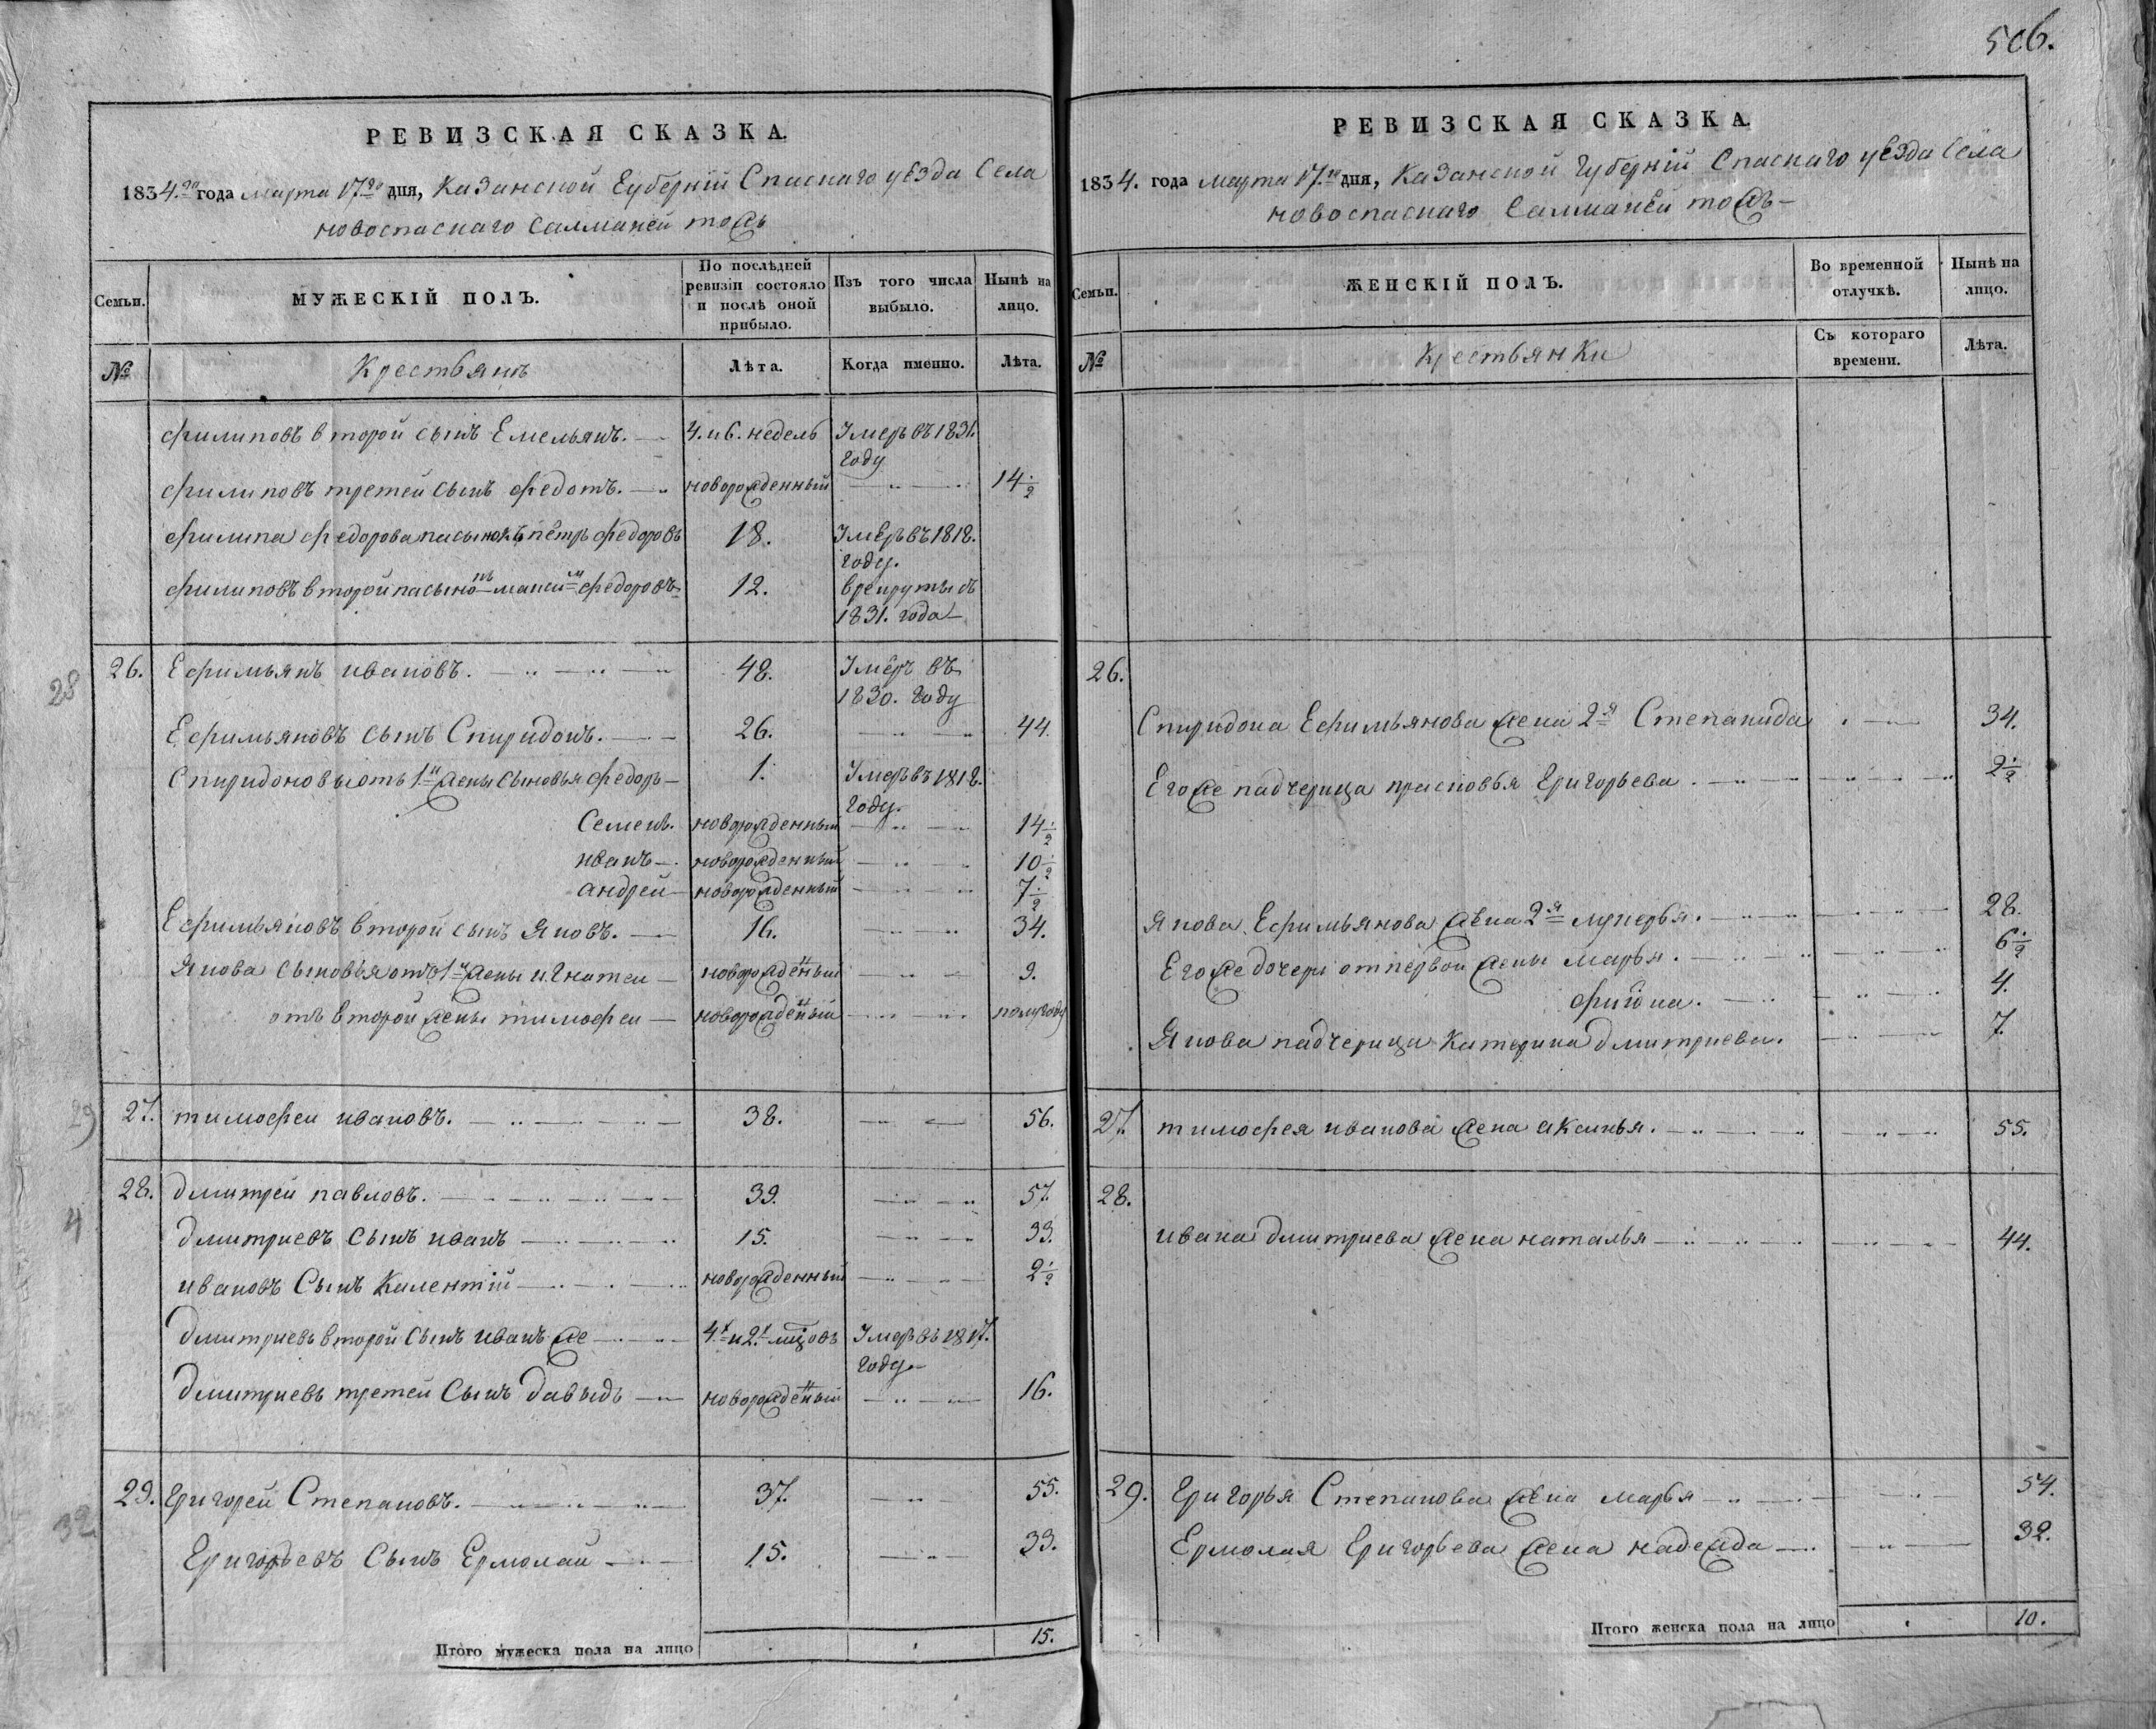 506.
РЕВИЗСКАЯ СКАЗКА.
1834.го года марта 17.го дня, Казанской Губерніи Спаскаго уезда Села
новоспаскаго Салманей тожъ
Семьи. МУЖЕСКІЙ ПОЛЪ. По послѣдней ревизіи состояло и послѣ оной прибыло. Изъ того числа выбыло. Нынѣ на лицо.
№ Крестьянъ Лѣта. Когда именно. Лѣта.
филиповъ второй сынъ Емельянъ. 4. и 6. недель Умеръ въ 1831. году
филиповъ третей сынъ федотъ. новорожденный 14 1/2
филипа федорова пасынокъ петръ федоровъ 18. Умеръ въ 1818. году.
филиповъ второй пасынокъ федоровъ 12. в рекруты съ 1831. года
28
26. Ефимьянъ ивановъ. 48. Умеръ въ 1830. году
Ефимьяновъ сынъ Спиридонъ. 26. 44.
Спиридоновы отъ 1й жены сыновья федоръ 1. Умеръ въ 1818. году.
Семенъ. новорожденный 14 1/2
иванъ новорожденный 10 1/2
андрей новорожденный 7 1/2
Ефимьяновъ второй сынъ Яковъ. 16. 34.
Якова сыновья отъ 1й жены игнатеи новорожденый 9.
отъ второй жены тимофеи новорожденый полугоду
29
27. тимофеи ивановъ. 38. 56.
28. дмитреи павловъ. 39. 57.
4
дмитриевъ сынъ иванъ 15. 33.
ивановъ Сынъ Калентій новорожденный 2 1/2
дмитриевъ второй Сынъ иванъ же 4х и 2х мцовъ Умеръ въ 1817. году
дмитриевъ третеи Сынъ давыдъ новорожденый 16.
29. Григореи Степановъ. 37. 55.
32
Григорьевъ Сынъ Ермолаи 15. 33.
Итого мужеска пола на лицо 15.
РЕВИЗСКАЯ СКАЗКА
1834. года марта 17.го дня, Казанской Губерніи Спаскаго уезда Села
новоспаскаго Салманей тожъ
Семьи. ЖЕНСКІЙ ПОЛЪ. Во временной отлучкѣ. Нынѣ на лицо.
№ Крестьянки Съ котораго времени. Лѣта.
26.
Спиридона Ефимьянова жена 2я Степанида 34.
Его же падчерица прасковья Григорьева 2 1/2
Якова Ефимьянова жена 2я лукерья. 28.
Его же дочери от первой жены марья. 6 1/2
4.
Якова падчерица Катерина дмитриева. 7.
27. тимофея иванова жена аксинья. 55.
28.
ивана дмитриева жена наталья 44.
29. Григорья Степанова жена марья 54.
Ермолая Григорьева жена надежда 32.
Итого женска пола на лицо 10.